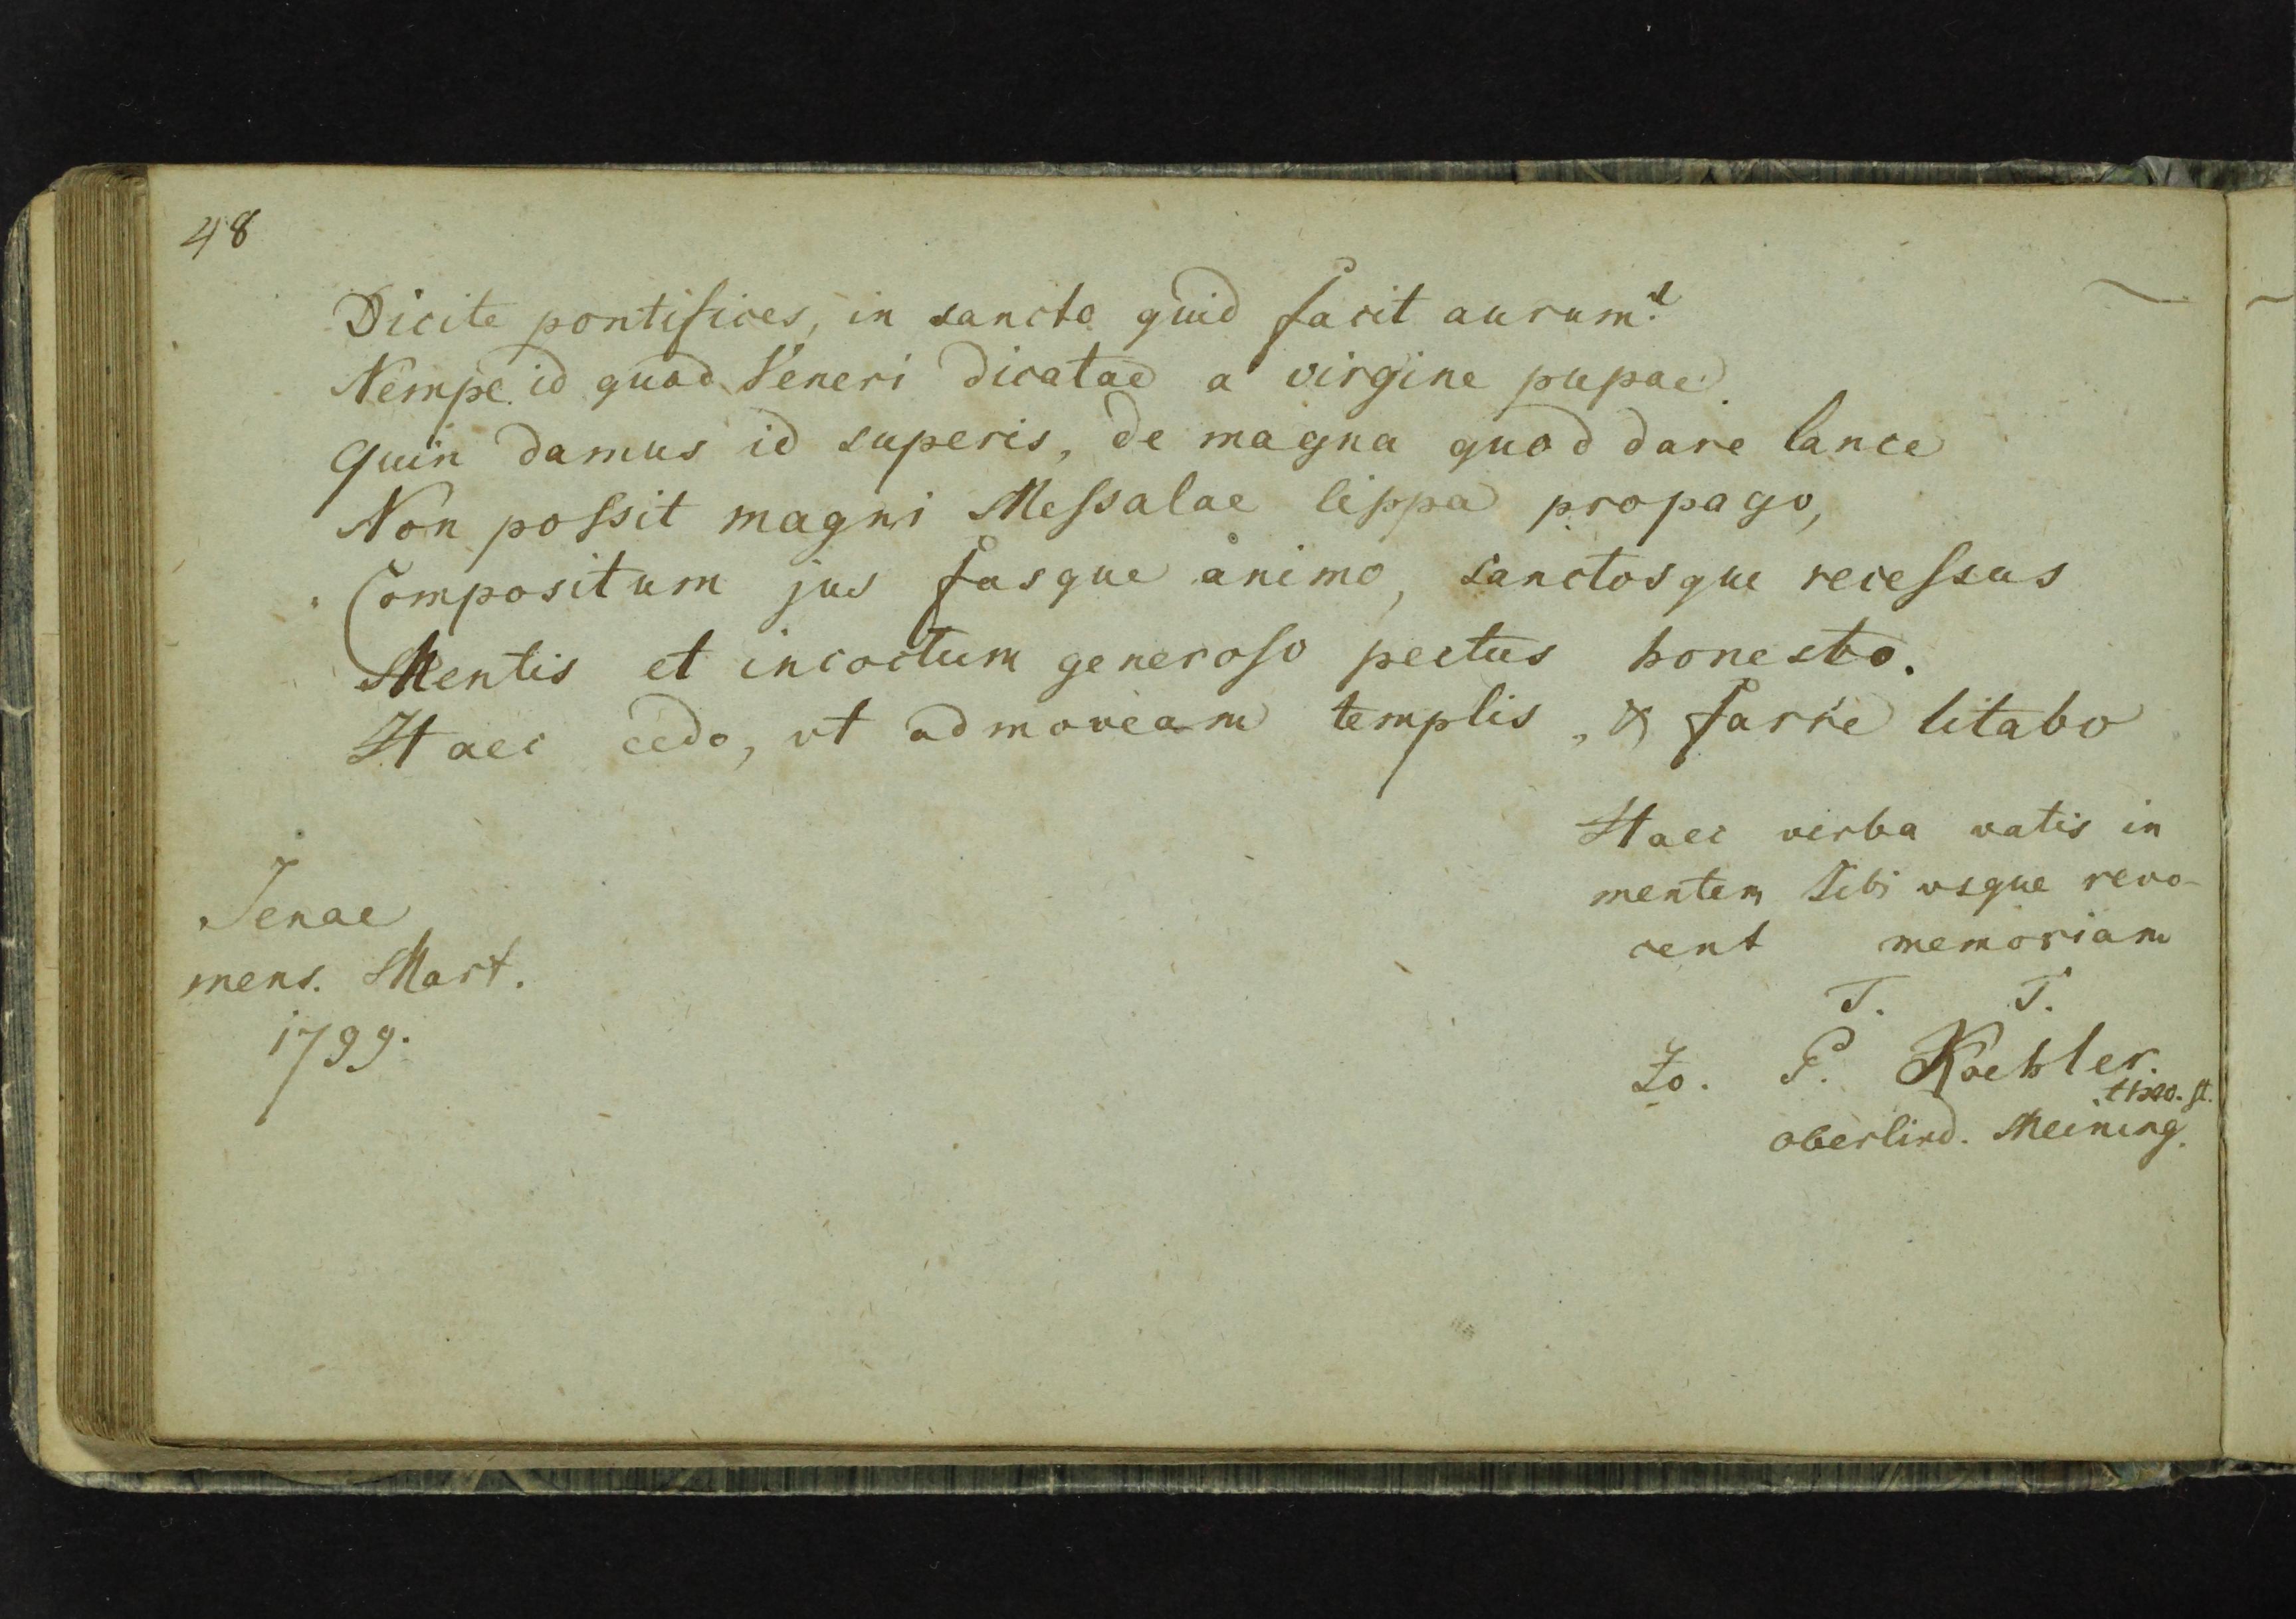 48
Dicite pontifices, in sancto quid facit aurum?
Nempe id quod Veneri dicatae a virgine pupae.
Quin damus id superis, de magna quod dare lance
Non poſsit magni Meſsalae lippa propago,
Compositum jus fasque animo, sanctosque receſsus
Mentis et incoctum generoſo pectus honesto.
Haec cedo, ut admoveam templis, & farre litabo
Haec verba vatis in
mentem Tibi usque revo-
cent memoriam
T. T.
Jo. P. Koehler.
theo. st.
oberlind. Meining.
Jenae
mens. Mart.
1799.